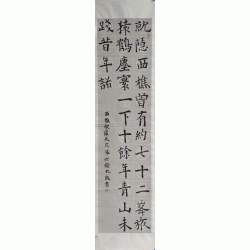 就隱西樵曾有約七十二峯旅
猿鶴塵寰一下十餘年青山未
踐昔年諾